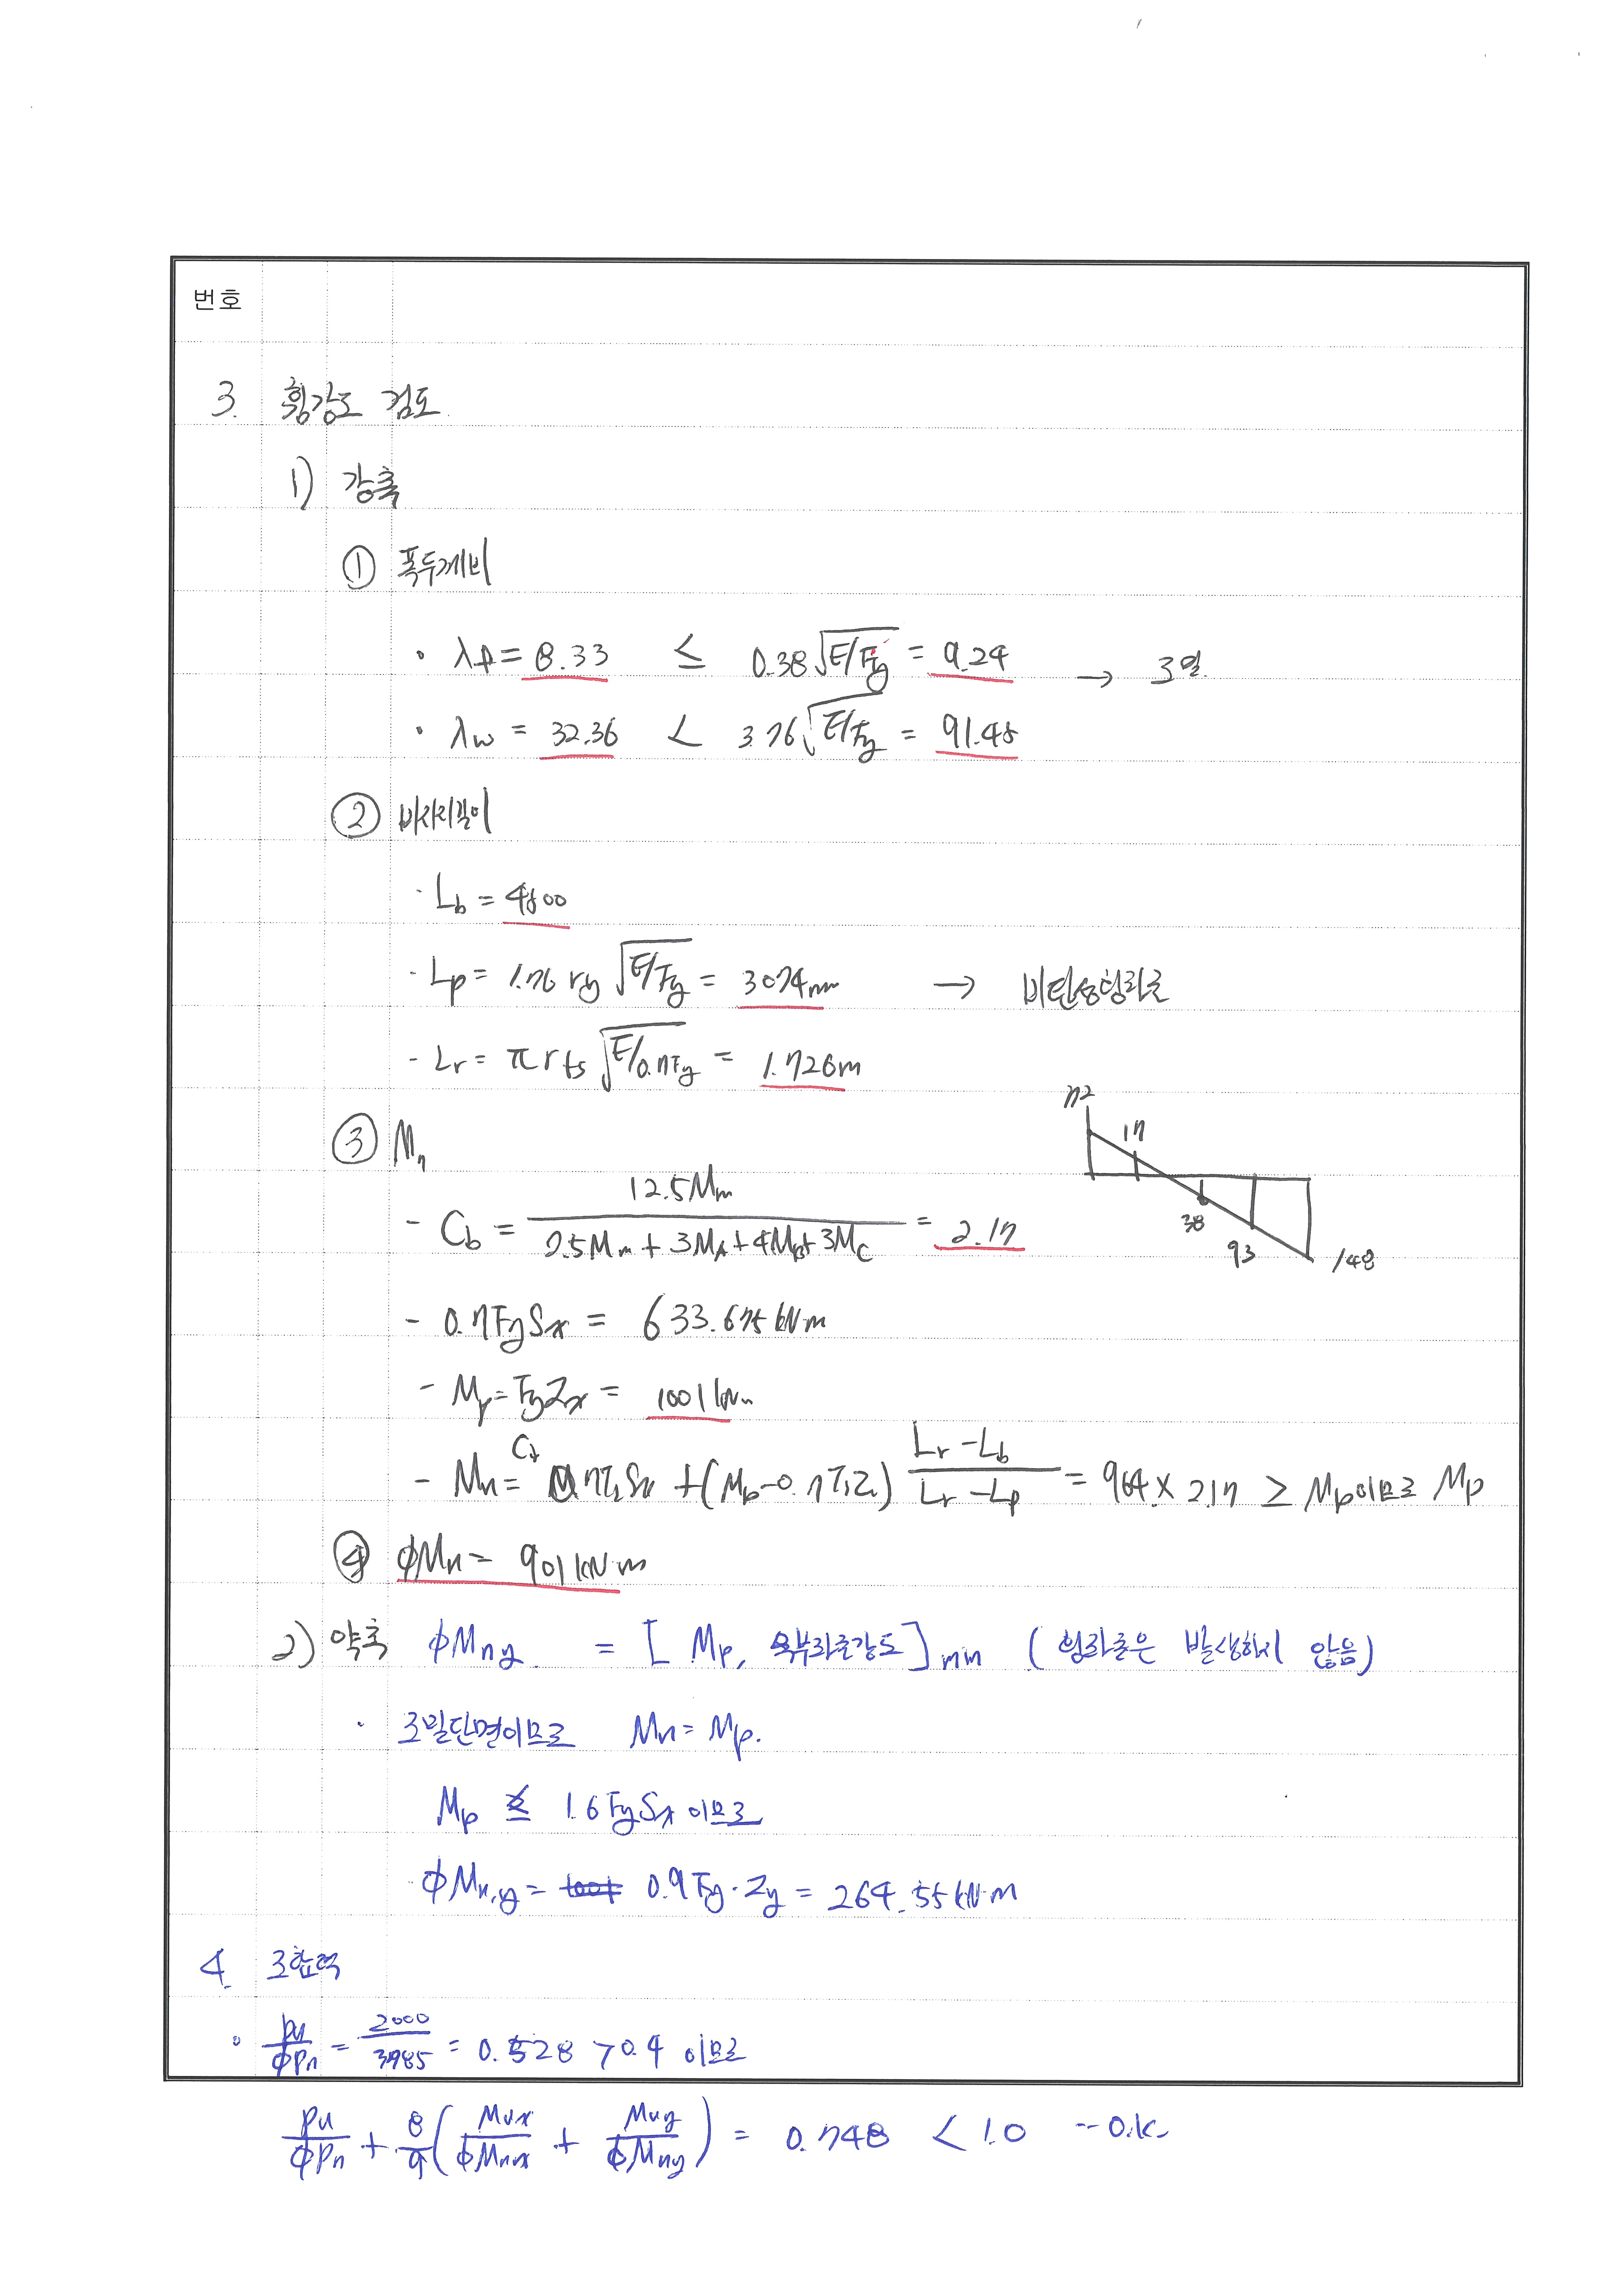 번호
3. 휨강도 검토
1) 강축
① 폭두께비
· λf = 8.33 ≤ 0.38√E/Fy = 9.24 → 조밀
· λw = 32.36 < 3.76√E/Fy = 91.45
② 비지지길이
· Lb = 4500
· Lp = 1.76 ry √E/Fy = 3074mm → 비탄성횡좌굴
- Lr = π rts √E/0.7Fy = 1.726m
③ Mn
72
17
38
93
148
- Cb = 12.5Mm / 2.5Mm + 3MA + 4MB + 3MC = 2.17
- 0.7FySx = 633.675 kN·m
- Mp = FyZx = 1001 kNm
- Mn = Cb 0.7FySx + (Mp - 0.7FyZx) Lr - Lb / Lr - Lp = 964 × 2.17 ≥ Mp이므로 Mp
④ ϕMn = 901 kN·m
2) 약축 ϕMny = [ Mp, 국부좌굴강도 ]min ( 횡좌굴은 발생하지 않음 )
· 조밀단면이므로 Mn = Mp.
Mp ≤ 1.6 FySx 이므로
ϕMn,y = 0.9 Fy · Zy = 264.55 kN·m
4. 조합력
· Pu / ϕPn = 2000 / 3785 = 0.528 > 0.4 이므로
Pu / ϕPn + 8/9 ( Mux / ϕMnx + Muy / ϕMny ) = 0.748 < 1.0 -- O.K.